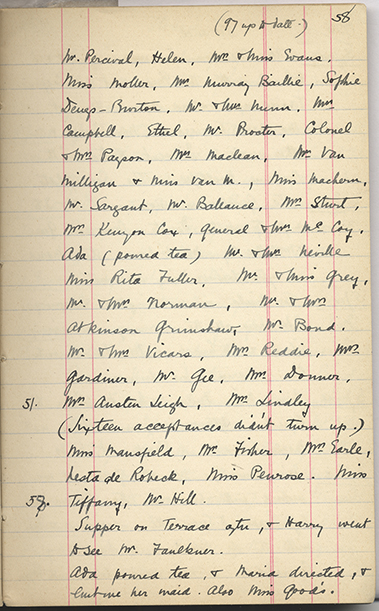 (97 up to date.) 58
Mr. Percival, Helen, Mrs & Miss Evans.
Miss Moller, Mrs Murray Baillie, Sophie
Denys-Burton. Mr. & Mrs Nunn. Mrs
Campbell, Ethel, Mr. Procter, Colonel
& Mrs Payson, Mrs Maclean, Mrs Van
Milligan & Miss Van M., Miss Machern,
Mr. Sargant, Mr. Ballance, Mrs Sturt,
Mrs Kenyon Cox, General & Mrs Mc Coy.
Ada (poured tea) Mr. & Mrs Neville
Miss Rita Fuller, Mr. & Miss Grey,
Mr. & Mrs Norman, Mr. & Mrs
Atkinson Grimshaw, Mr. Bond.
Mr. & Mrs Vicars, Mrs Reddie, Mrs
Gardiner, Mr. Gee, Mrs Donner,
51. Mrs Austen Leigh, Mrs Lindley
(Sixteen acceptances didn't turn up.)
Miss Mansfield, Mrs Fisher, Mrs Earle,
Nesta de Robeck, Miss Penrose. Miss
Tiffany, Mr. Hill.
Supper on Terrace after, & Harry went
to see Mr. Faulkner.
Ada poured tea, & Maria directed, &
lent me her maid. Also Miss Goods.